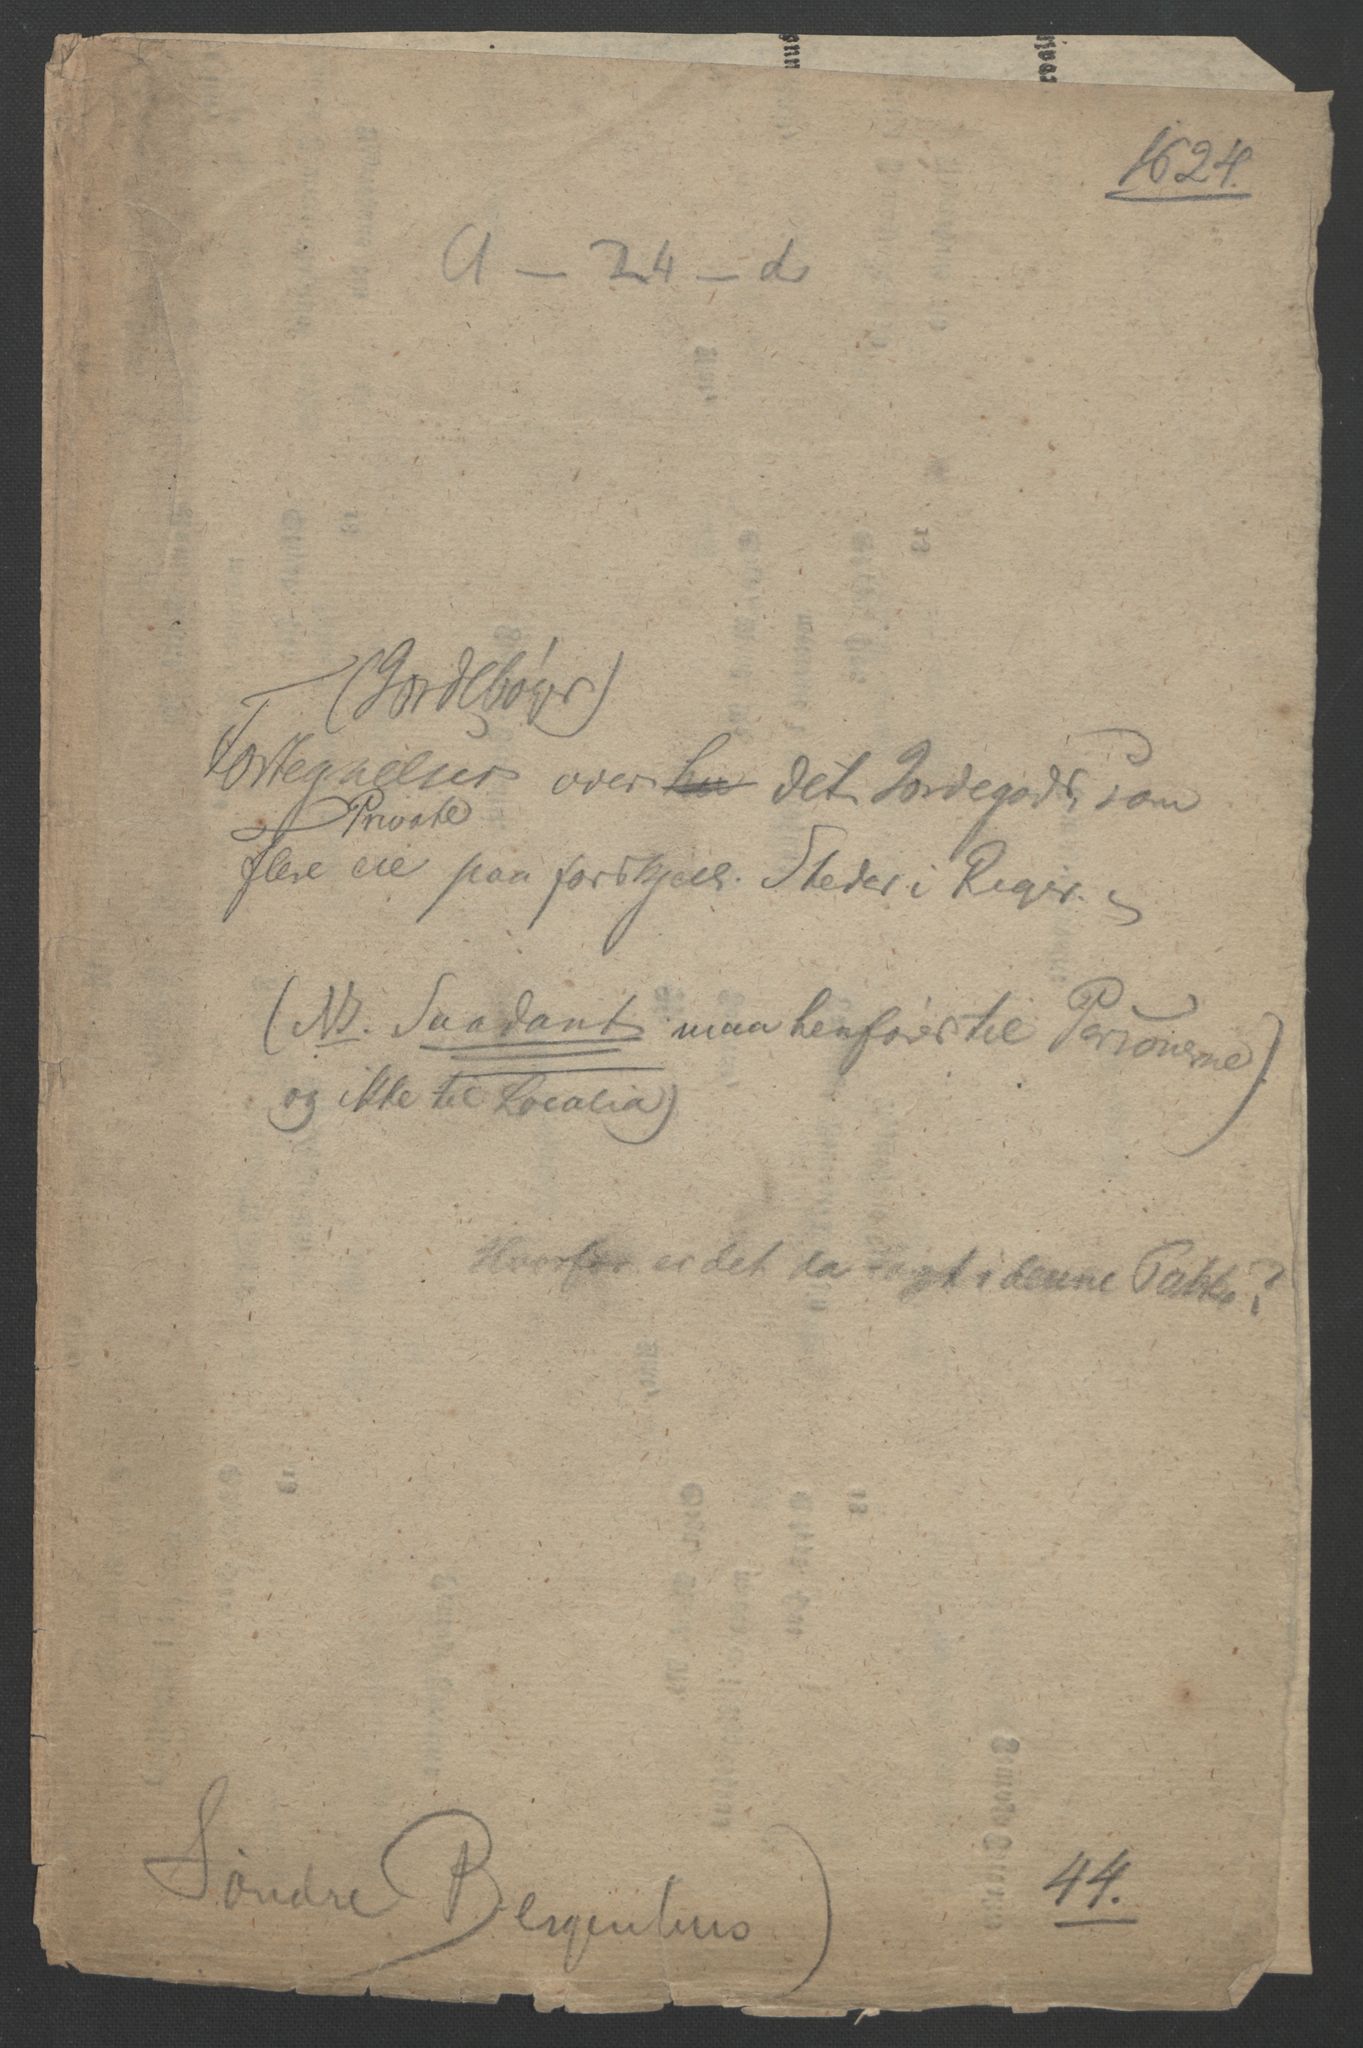 1624.
A – 24 – d
(Jordebøger)
Fortegnelser over det Jordegods, som
Private
flere eie paa forskjell. Steder i Riget.
(NB. Saadant maa henføres til Personerne)
og ikke til Localia)
Hvorfor er det da lagt i denne Pakke?
Søndre Bergenhus)
44.